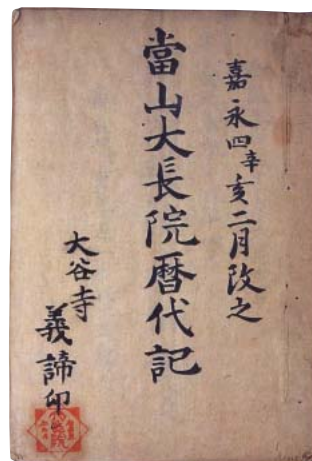 嘉永四辛亥二月改之
當山大長院暦代記
大谷寺
義諦印